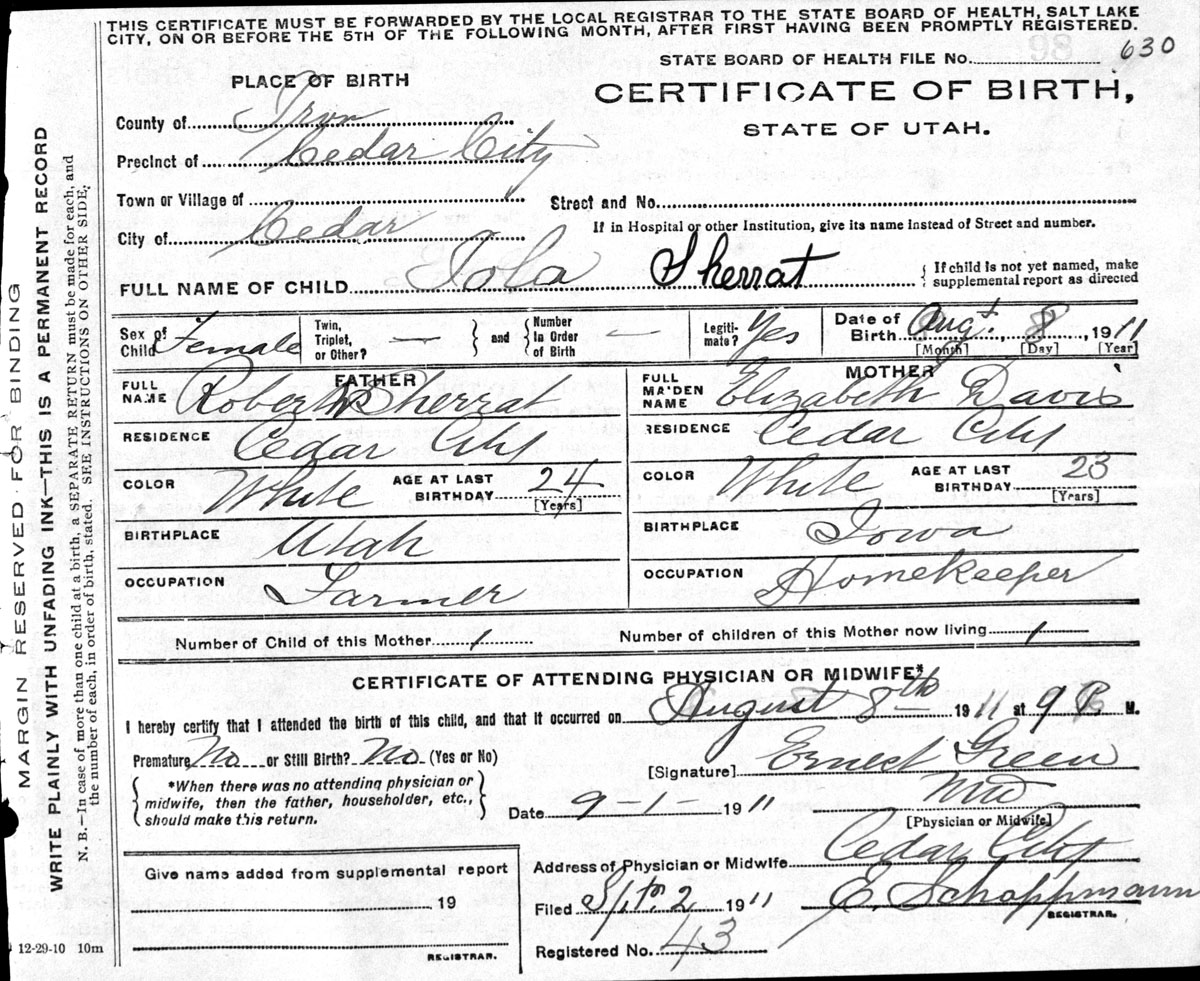 THIS CERTIFICATE MUST BE FORWARDED BY THE LOCAL REGISTRAR TO THE STATE BOARD OF HEALTH, SALT LAKE
CITY, ON OR BEFORE THE 5TH OF THE FOLLOWING MONTH, AFTER FIRST HAVING BEEN PROMPTLY REGISTERED.
STATE BOARD OF HEALTH FILE No. 630
PLACE OF BIRTH
CERTIFICATE OF BIRTH,
STATE OF UTAH.
County of Iron
Precinct of Cedar City
Town or Village of
Street and No.
City of Cedar
If in Hospital or other Institution, give its name instead of Street and number.
FULL NAME OF CHILD Iola Sherrat { If child is not yet named, make supplemental report as directed
Sex of Child Female
Twin, Triplet, or Other? —
} and {
Number In Order of Birth —
Legitimate? Yes
Date of Birth Augt. 8, 1911
[Month] [Day] [Year]
FATHER
FULL NAME Robert W Sherrat
RESIDENCE Cedar City
COLOR White AGE AT LAST BIRTHDAY 24
[Years]
BIRTHPLACE Utah
OCCUPATION Farmer
MOTHER
FULL MAIDEN NAME Elizabeth Davis
RESIDENCE Cedar City
COLOR White AGE AT LAST BIRTHDAY 23
[Years]
BIRTHPLACE Iowa
OCCUPATION Homekeeper
Number of Child of this Mother 1 Number of children of this Mother now living 1
CERTIFICATE OF ATTENDING PHYSICIAN OR MIDWIFE*
I hereby certify that I attended the birth of this child, and that it occurred on August 8th 1911 at 9 P. M.
Premature No or Still Birth? No (Yes or No)
[Signature] Ernest Green
{ *When there was no attending physician or
midwife, then the father, householder, etc.,
should make this return. }
Date 9-1- 1911 MD
[Physician or Midwife]
Address of Physician or Midwife Cedar City
Give name added from supplemental report
19
REGISTRAR.
Filed Spt. 2 1911 E. Schoppmann
REGISTRAR.
Registered No. 43
12-29-10 10m
MARGIN RESERVED FOR BINDING
WRITE PLAINLY WITH UNFADING INK—THIS IS A PERMANENT RECORD
N. B.—In case of more than one child at a birth, a SEPARATE RETURN must be made for each, and
the number of each, in order of birth, stated. SEE INSTRUCTIONS ON OTHER SIDE.